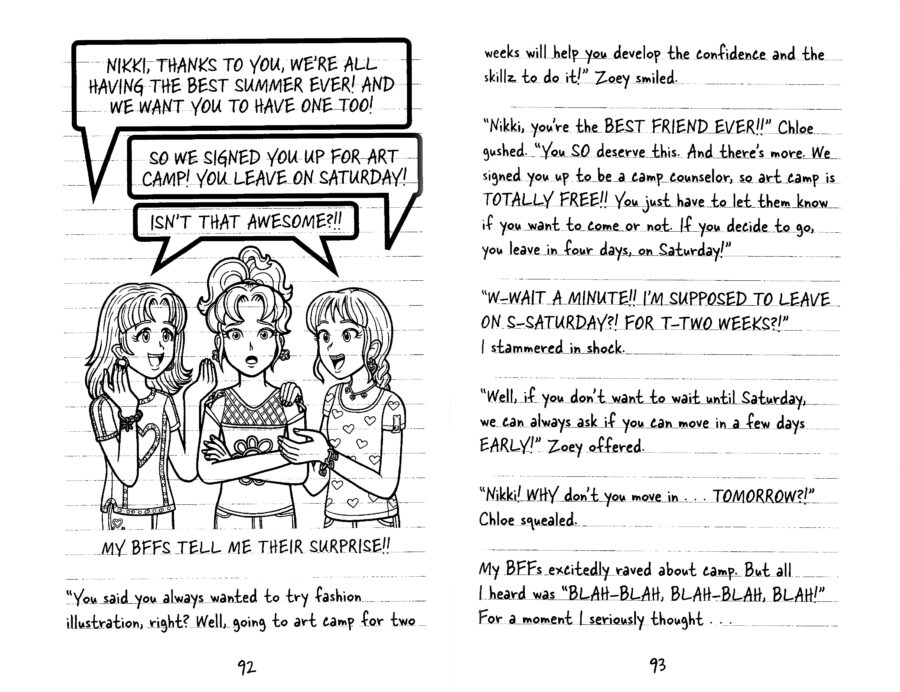 NIKKI, THANKS TO YOU, WE'RE ALL
HAVING THE BEST SUMMER EVER! AND
WE WANT YOU TO HAVE ONE TOO!
SO WE SIGNED YOU UP FOR ART
CAMP! YOU LEAVE ON SATURDAY!
ISN'T THAT AWESOME?!!
MY BFFS TELL ME THEIR SURPRISE!!
"You said you always wanted to try fashion
illustration, right? Well, going to art camp for two
92
weeks will help you develop the confidence and the
skillz to do it!" Zoey smiled.
"Nikki, you're the BEST FRIEND EVER!!" Chloe
gushed. "You SO deserve this. And there's more. We
signed you up to be a camp counselor, so art camp is
TOTALLY FREE!! You just have to let them know
if you want to come or not. If you decide to go,
you leave in four days, on Saturday!"
"W-WAIT A MINUTE!! I'M SUPPOSED TO LEAVE
ON S-SATURDAY?! FOR T-TWO WEEKS?!"
I stammered in shock.
"Well, if you don't want to wait until Saturday,
we can always ask if you can move in a few days
EARLY!" Zoey offered.
"Nikki! WHY don't you move in . . . TOMORROW?!"
Chloe squealed.
My BFFs excitedly raved about camp. But all
I heard was "BLAH-BLAH, BLAH-BLAH, BLAH!"
For a moment I seriously thought . . .
93